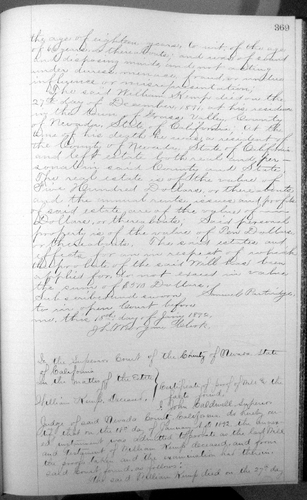 369
the age of eighteen years, to wit, of the age
of years or thereabouts, and was of sound
and disposing mind, and not acting
under duress, menace, fraud, or undue
influence or misrepresentation;
The said William Kemp died on the
27th day of December, 1891, at his residence
in the Town of Grass Valley County
of Nevada State of California; At the
time of his death he was a resident of
the County of Nevada State of California
and left estate both real and per-
sonal in said County and State.
The real estate is of the value of
Five Hundred Dollars, or thereabouts,
and the annual rents, issues and profits
of said estate, are of the value of
Dollars, or thereabouts; Said personal
property is of the value of Ten Dollars,
or thereabouts. The said estate and
effects for or in respect of which
probate of the said Will has been
applied for do not exceed in value
the sum of $510 Dollars.
Subscribed and sworn Samuel
to in open Court before
me, this 18th day of Jany 1892.
Clerk.
In the Superior Court of the County of Nevada State
of California
In the matter of the Estate
of
Certificate of proof of Will & the
William Kemp, deceased. facts found.
I John Caldwell, Superior
Judge of said Nevada County, California do hereby cer-
tify that on the 18th day of January A.D. 1892, the annex-
ed instrument was admitted to probate as the last Will
and testament of William Kemp, deceased: and from
the proofs taken and the examination had therein
said Court finds as follows:
That said William Kemp died on the 27th day